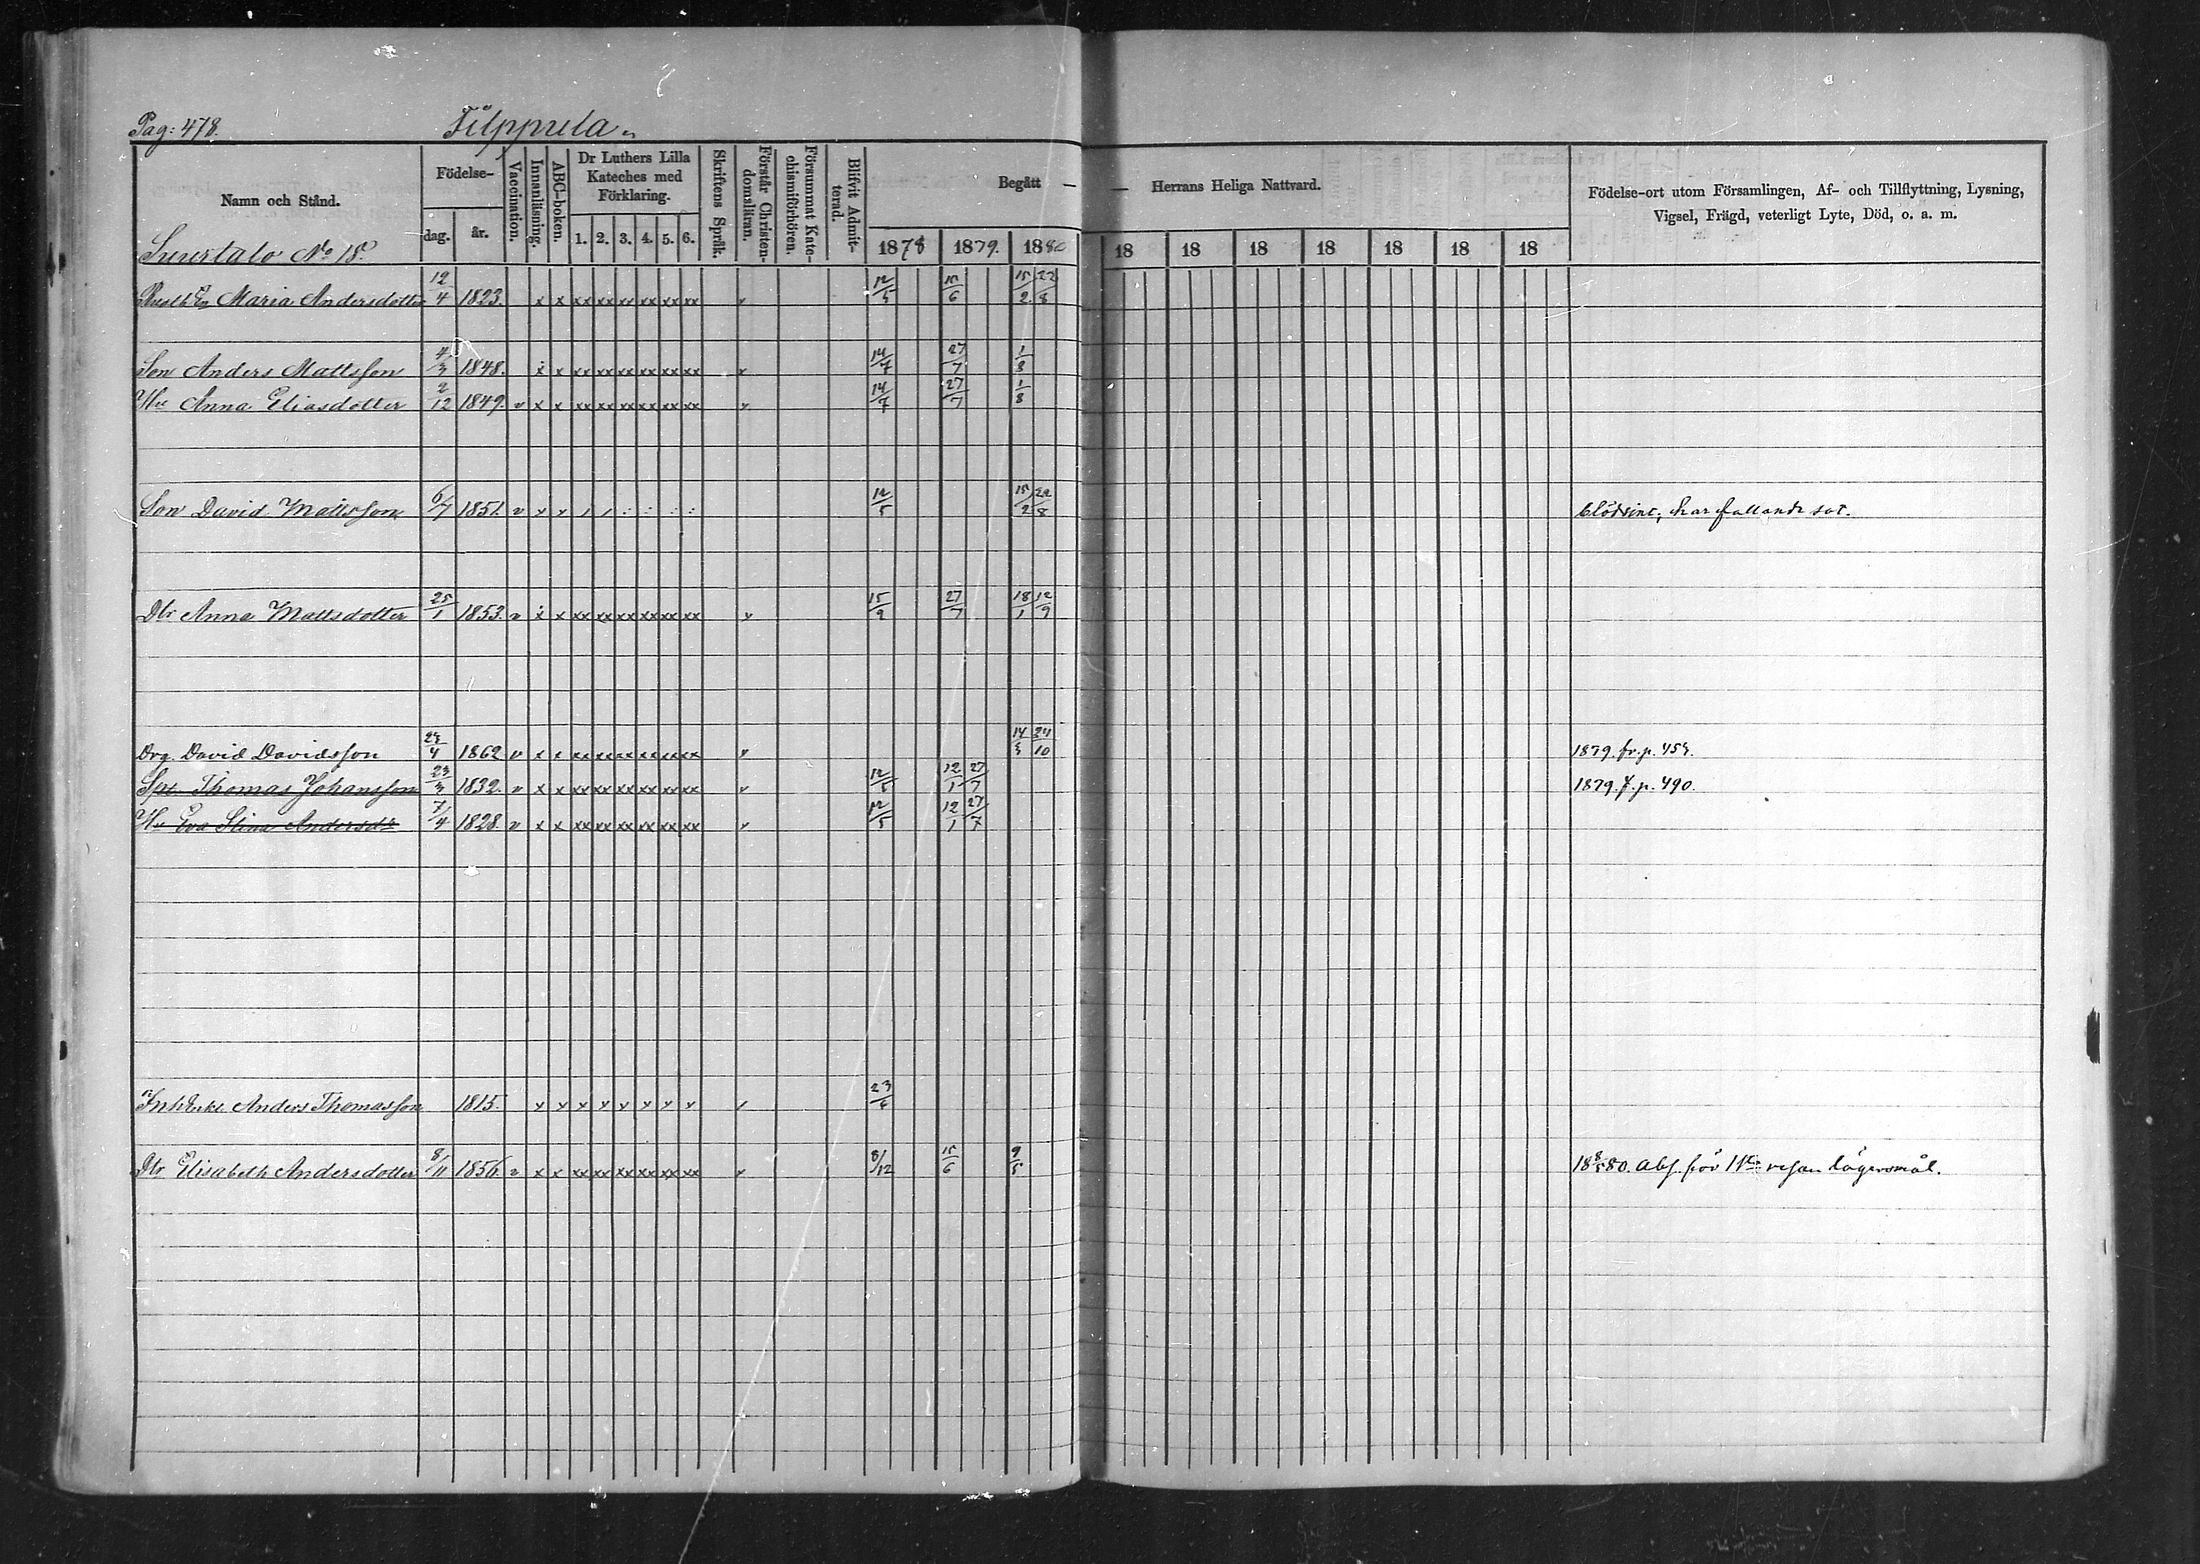 Pag: 478.
Filppula
Namn och Stånd.
Födelse-
dag.
år.
Vaccination.
Innanläsning.
ABC-boken.
Dr Luthers Lilla
Kateches med
Förklaring.
1. 2. 3. 4. 5. 6.
Skriftens Språk.
Förstår Christen-
domsläran.
Försummat Kate-
chismiförhören.
Blifvit Admit-
terad.
Begått — — Herrans Heliga Nattvard.
1878 1879. 1880 18 18 18 18 18 18 18
Födelse-ort utom Församlingen, Af- och Tillflyttning, Lysning,
Vigsel, Frägd, veterligt Lyte, Död, o. a. m.
No 18.
Maria Andersdotter 12/4 1823. x x xx xx xx xx xx xx v 12/5 15/6 15/2 22/8
Son Anders Mattsson 4/3 1848. x x xx xx xx xx xx xx v 14/7 27/7 1/8
Hu Anna Eliasdotter 2/12 1849. v x x xx xx xx xx xx xx v 14/7 27/7 1/8
Son David Mattsson 6/7 1851. v x x 12/5 15/2 22/8 blödsint; har fallande sot.
Dtr Anna Mattsdotter 25/1 1853. v x x xx xx xx xx xx xx v 15/9 27/7 18/1 12/9
Drg. David Davidsson 1862 v x x xx xx xx xx xx xx v 24/10 1879. fr. p.
Thomas Johansson 23/3 1832. v x x xx xx xx xx xx xx v 12/5 12/1 27/7 1879. f. p. 490.
Hu Eva Stina Andersdr 7/4 1828. v x x xx xx xx xx xx xx v 12/5 12/1 27/7
Inh Enkl. Anders Thomasson 1815.
Dtr Elisabeth Andersdotter 8/11 1856. v x x xx xx xx xx xx xx v 8/12 15/6 9/5 18 8/5 80. Abs. för resan lägersmål.